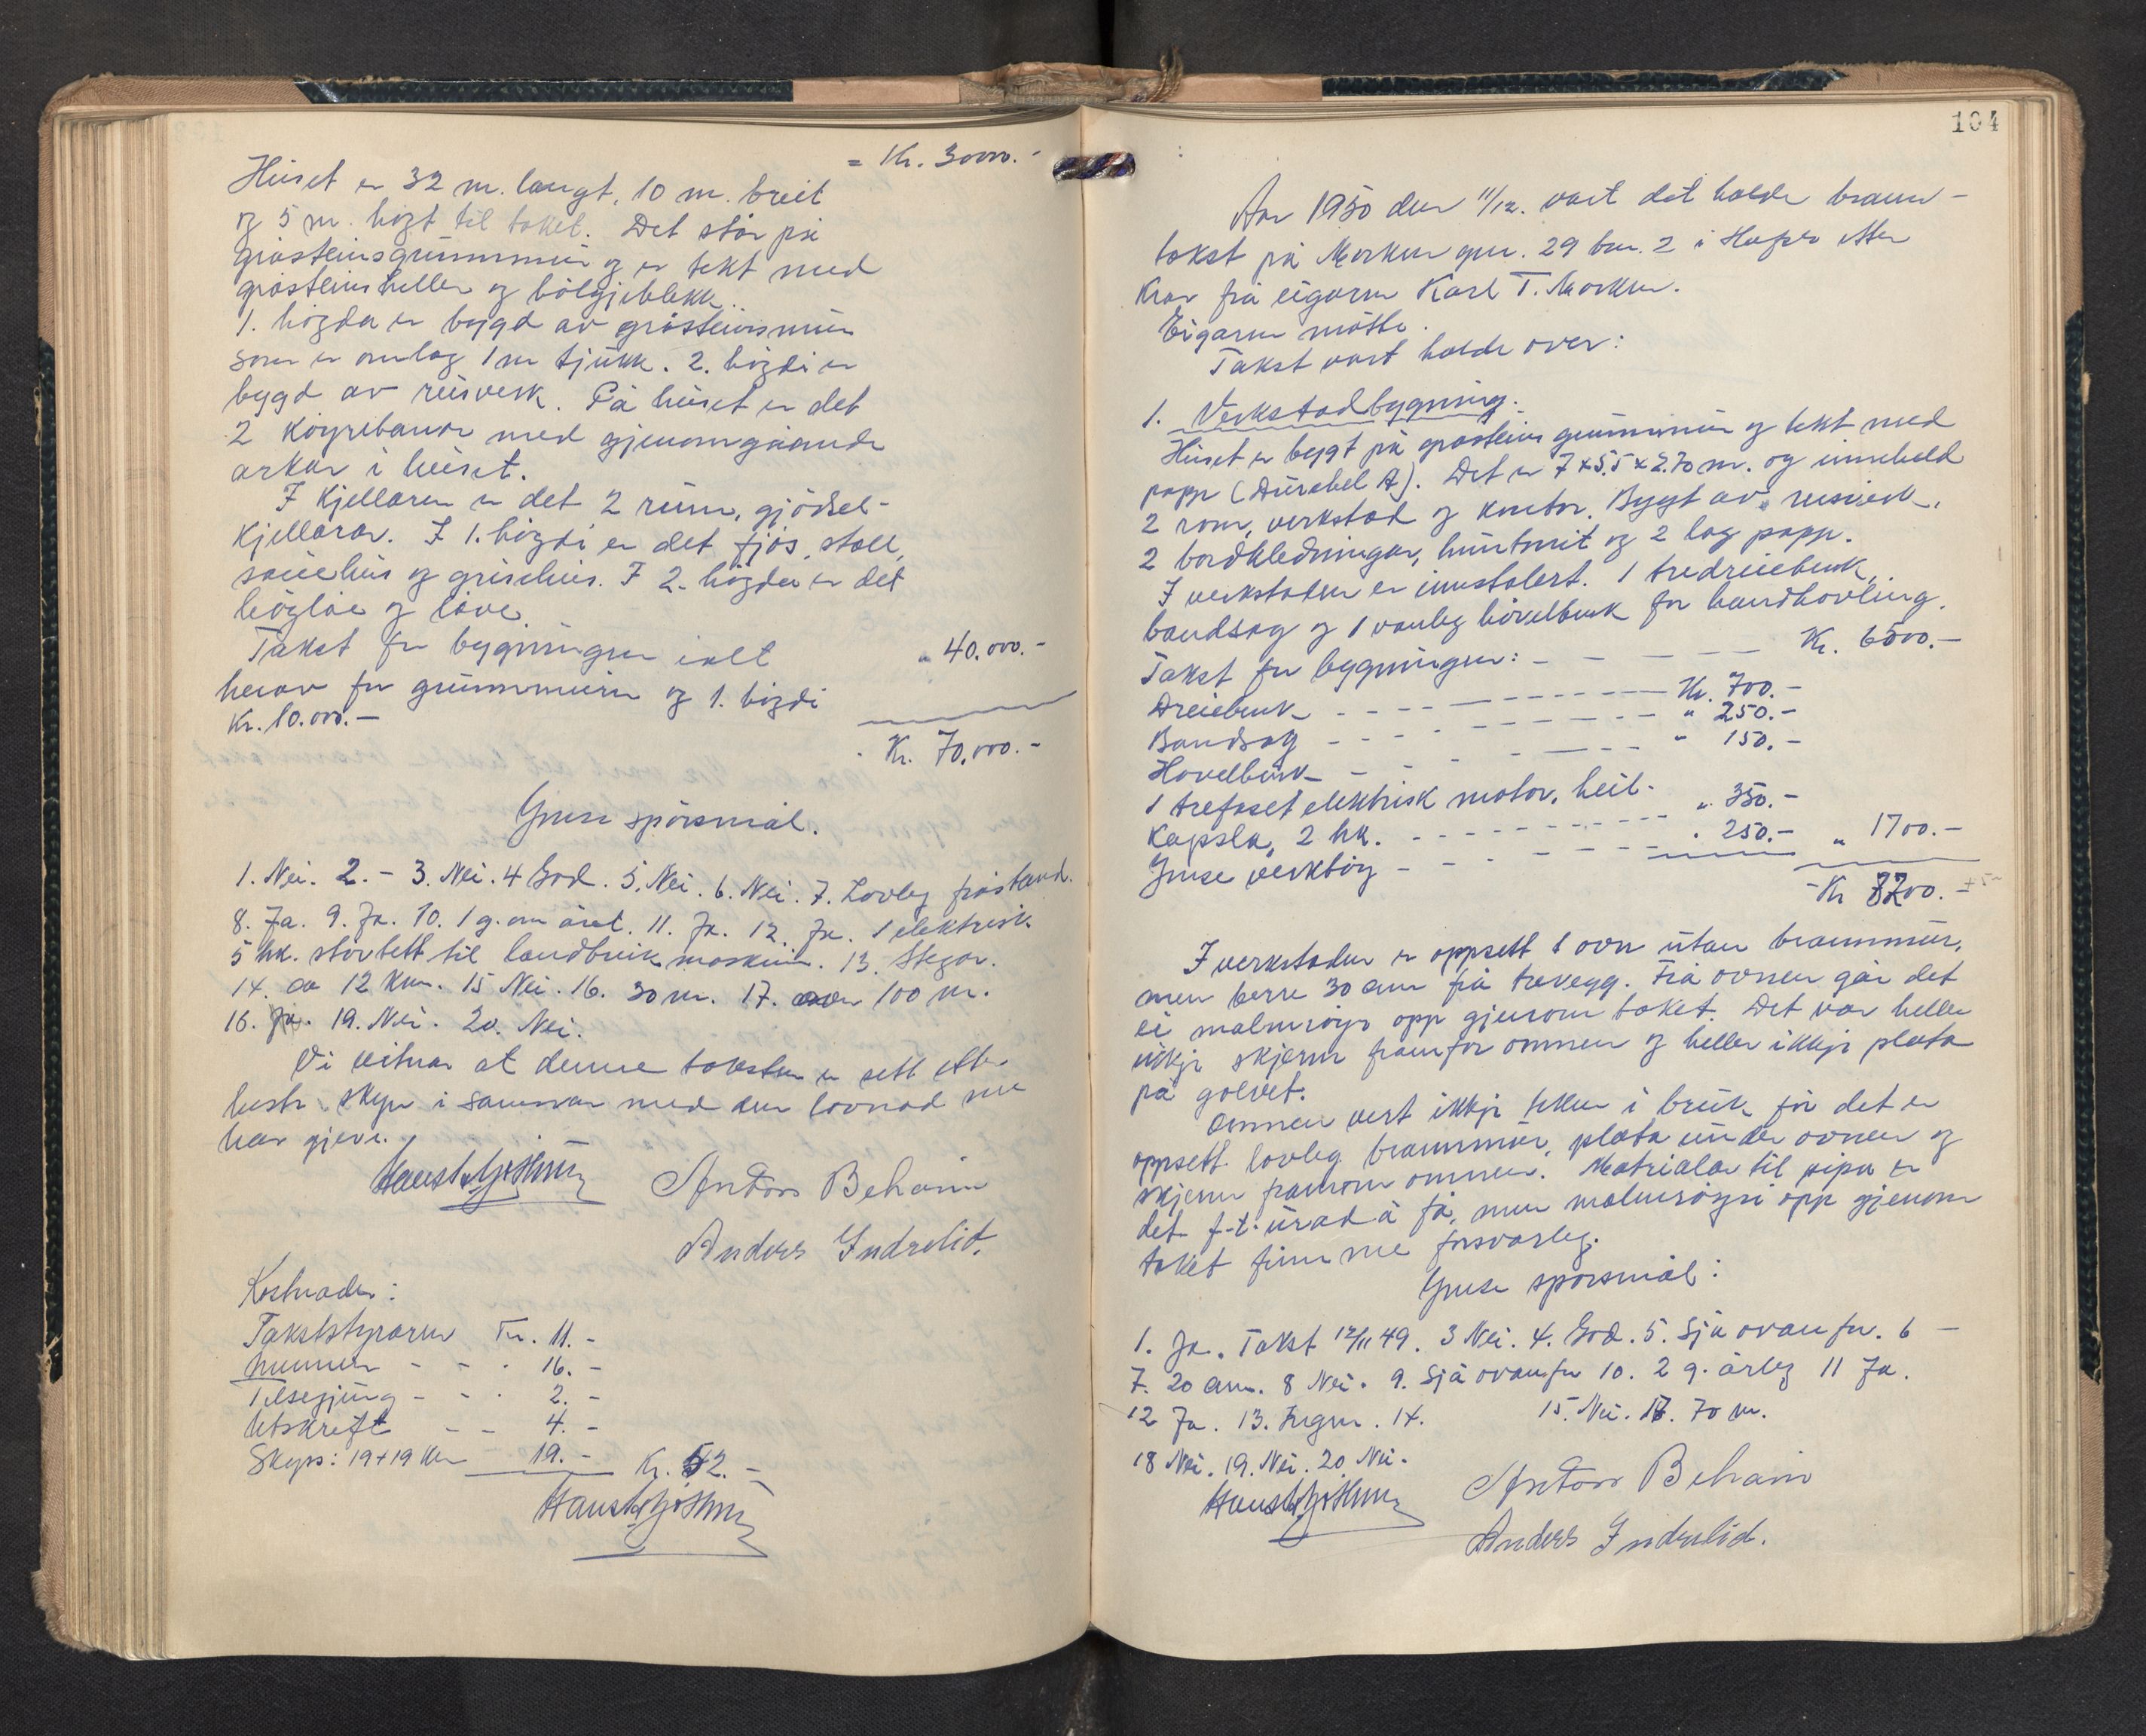 = Kr. 30000.-
Huset er 32 m. langt, 10 m. breit
og 5 m. högt til taket. Det står på
gråsteinsgrunnmur og er tekt med
gråsteinsheller og bölgjeblekk.
1. högda er bygd av gråsteinsmur
som er omlag 1 m tjukk. 2. högdi er
bygd av reisverk. På huset er det
2 köyrebanor med gjenomgåande
arkar i huset.
I kjellaren er det 2 rum, gjödsel-
kjellarar. I 1. högdi er det fjös, stall,
sauehus og grisehus. I 2. högda er det
höylöe og låve.
Takst for bygningen ialt " 40.000.-
herav for grunnmuren og 1. högdi
Kr. 10.000.-
Kr. 70.000.-
Ymse spörsmål.
1. Nei. 2. - 3. Nei. 4 God. 5. Nei. 6. Nei. 7. Lovleg fråstand.
8. Ja. 9. Ja. 10. 1 g. om året. 11. Ja. 12. Ja. 1 elektrisk
5 hk. stövtett til landbruksmaskin. 13. Stegar.
14. ca 12 km. 15 Nei. 16. 30 m. 17. over 100 m.
18. Ja. 19. Nei. 20. Nei.
Vi vitnar at denne taksten er sett etter
beste skyn i samsvar med den lovnad me
har gjeve.
Anton Behain
Anders Indrelid.
Kostnader:
Takststyraren Kr. 11.-
mennene - - 16.-
Tilsegjing - - 2.-
Utskrift - - 4.-
Skyss: 19+19 km 19.- Kr. 52.-
104
Aar 1950 den 11/12. vart det halde brann-
takst på Morken gnr. 29 bnr. 2 i Hafslo etter
krav frå eigaren Karl T. Morken.
Eigaren mötte.
Takst vart halde over:
1. Verkstadbygning.
Huset er bygt på gråsteins grunnmur og tekt med
papp (Durabel A). Det er 7 x 5.5 x 2.70 m. og inneheld
2 rom, verkstad og kontor. Bygt av reisverk,
2 bordkledningar, huntonit og 2 lag papp.
I verkstaden er innstalert. 1 tredreiebenk,
bandsag og 1 vanleg hövelbenk for handhovling.
Takst for bygningen: - - - - Kr. 6500.-
Dreiebenk - - - - Kr. 700.-
Bandsag - - - - " 250.-
Hovelbenk - - - - " 150.-
1 trefaset elektrisk motor, heil-
kapsla, 2 hk. - - - - " 350.-
Ymse verktöy - - - - " 250.- " 1700.-
Kr 8200.-
I verkstaden er oppsett 1 ovn utan brannmur,
men berre 30 cm frå trevegg. Frå ovnen går det
ei malmröyr opp gjenom taket. Det var heller
ikkje skjerm framfor omnen og heller ikkje plata
på golvet.
Omnen vert ikkje teken i bruk för det er
oppsett lovleg brannmur, plata under ovnen og
skjerm framom omnen. Matrialar til pipa er
det f.t. uråd å få, men malmröyri opp gjenom
taket finn me forsvarleg.
Ymse spörsmål:
1. Ja. Takst 12/11 49. 3 Nei. 4. God. 5. Sjå ovanfor. 6 -
7. 20 cm. 8 Nei. 9. Sjå ovanfor 10. 2 g. årleg 11 Ja.
12 Ja. 13. Ingen. 14. 15. Nei. 17. 70 m.
18 Nei. 19. Nei. 20. Nei.
Anton Behain
Anders Indrelid.